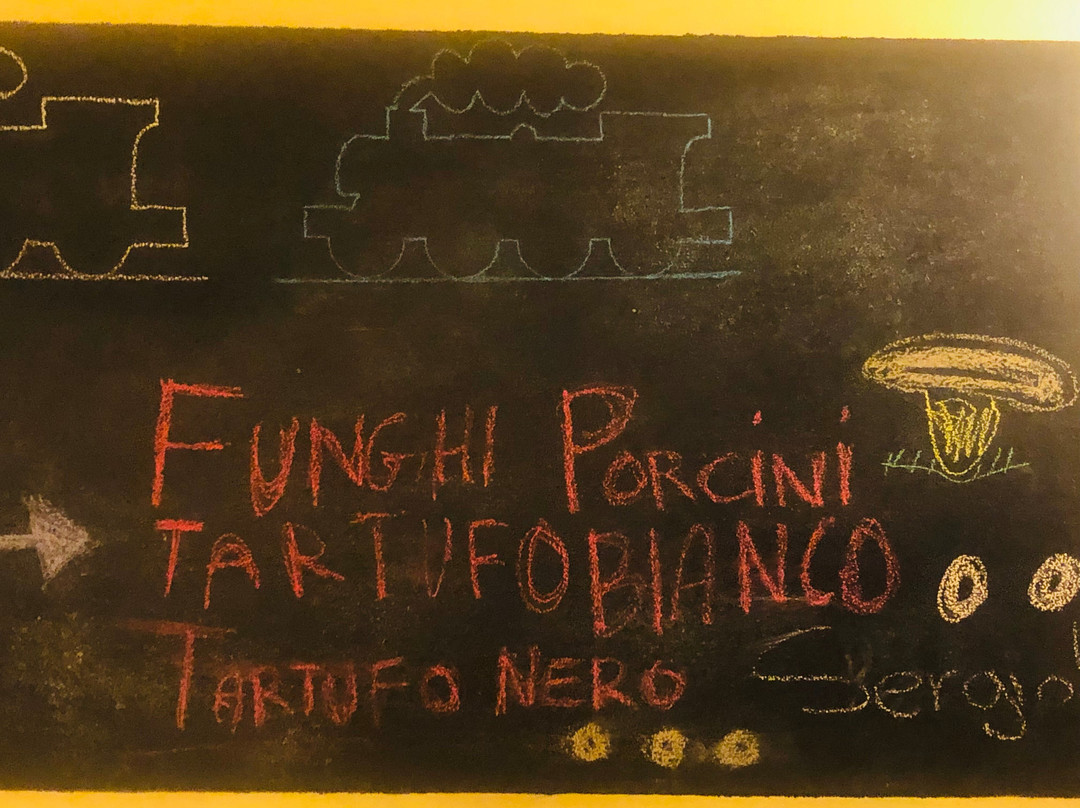 FUNGHI PORCINI
TARTUFO BIANCO
TARTUFO NERO
Sergio